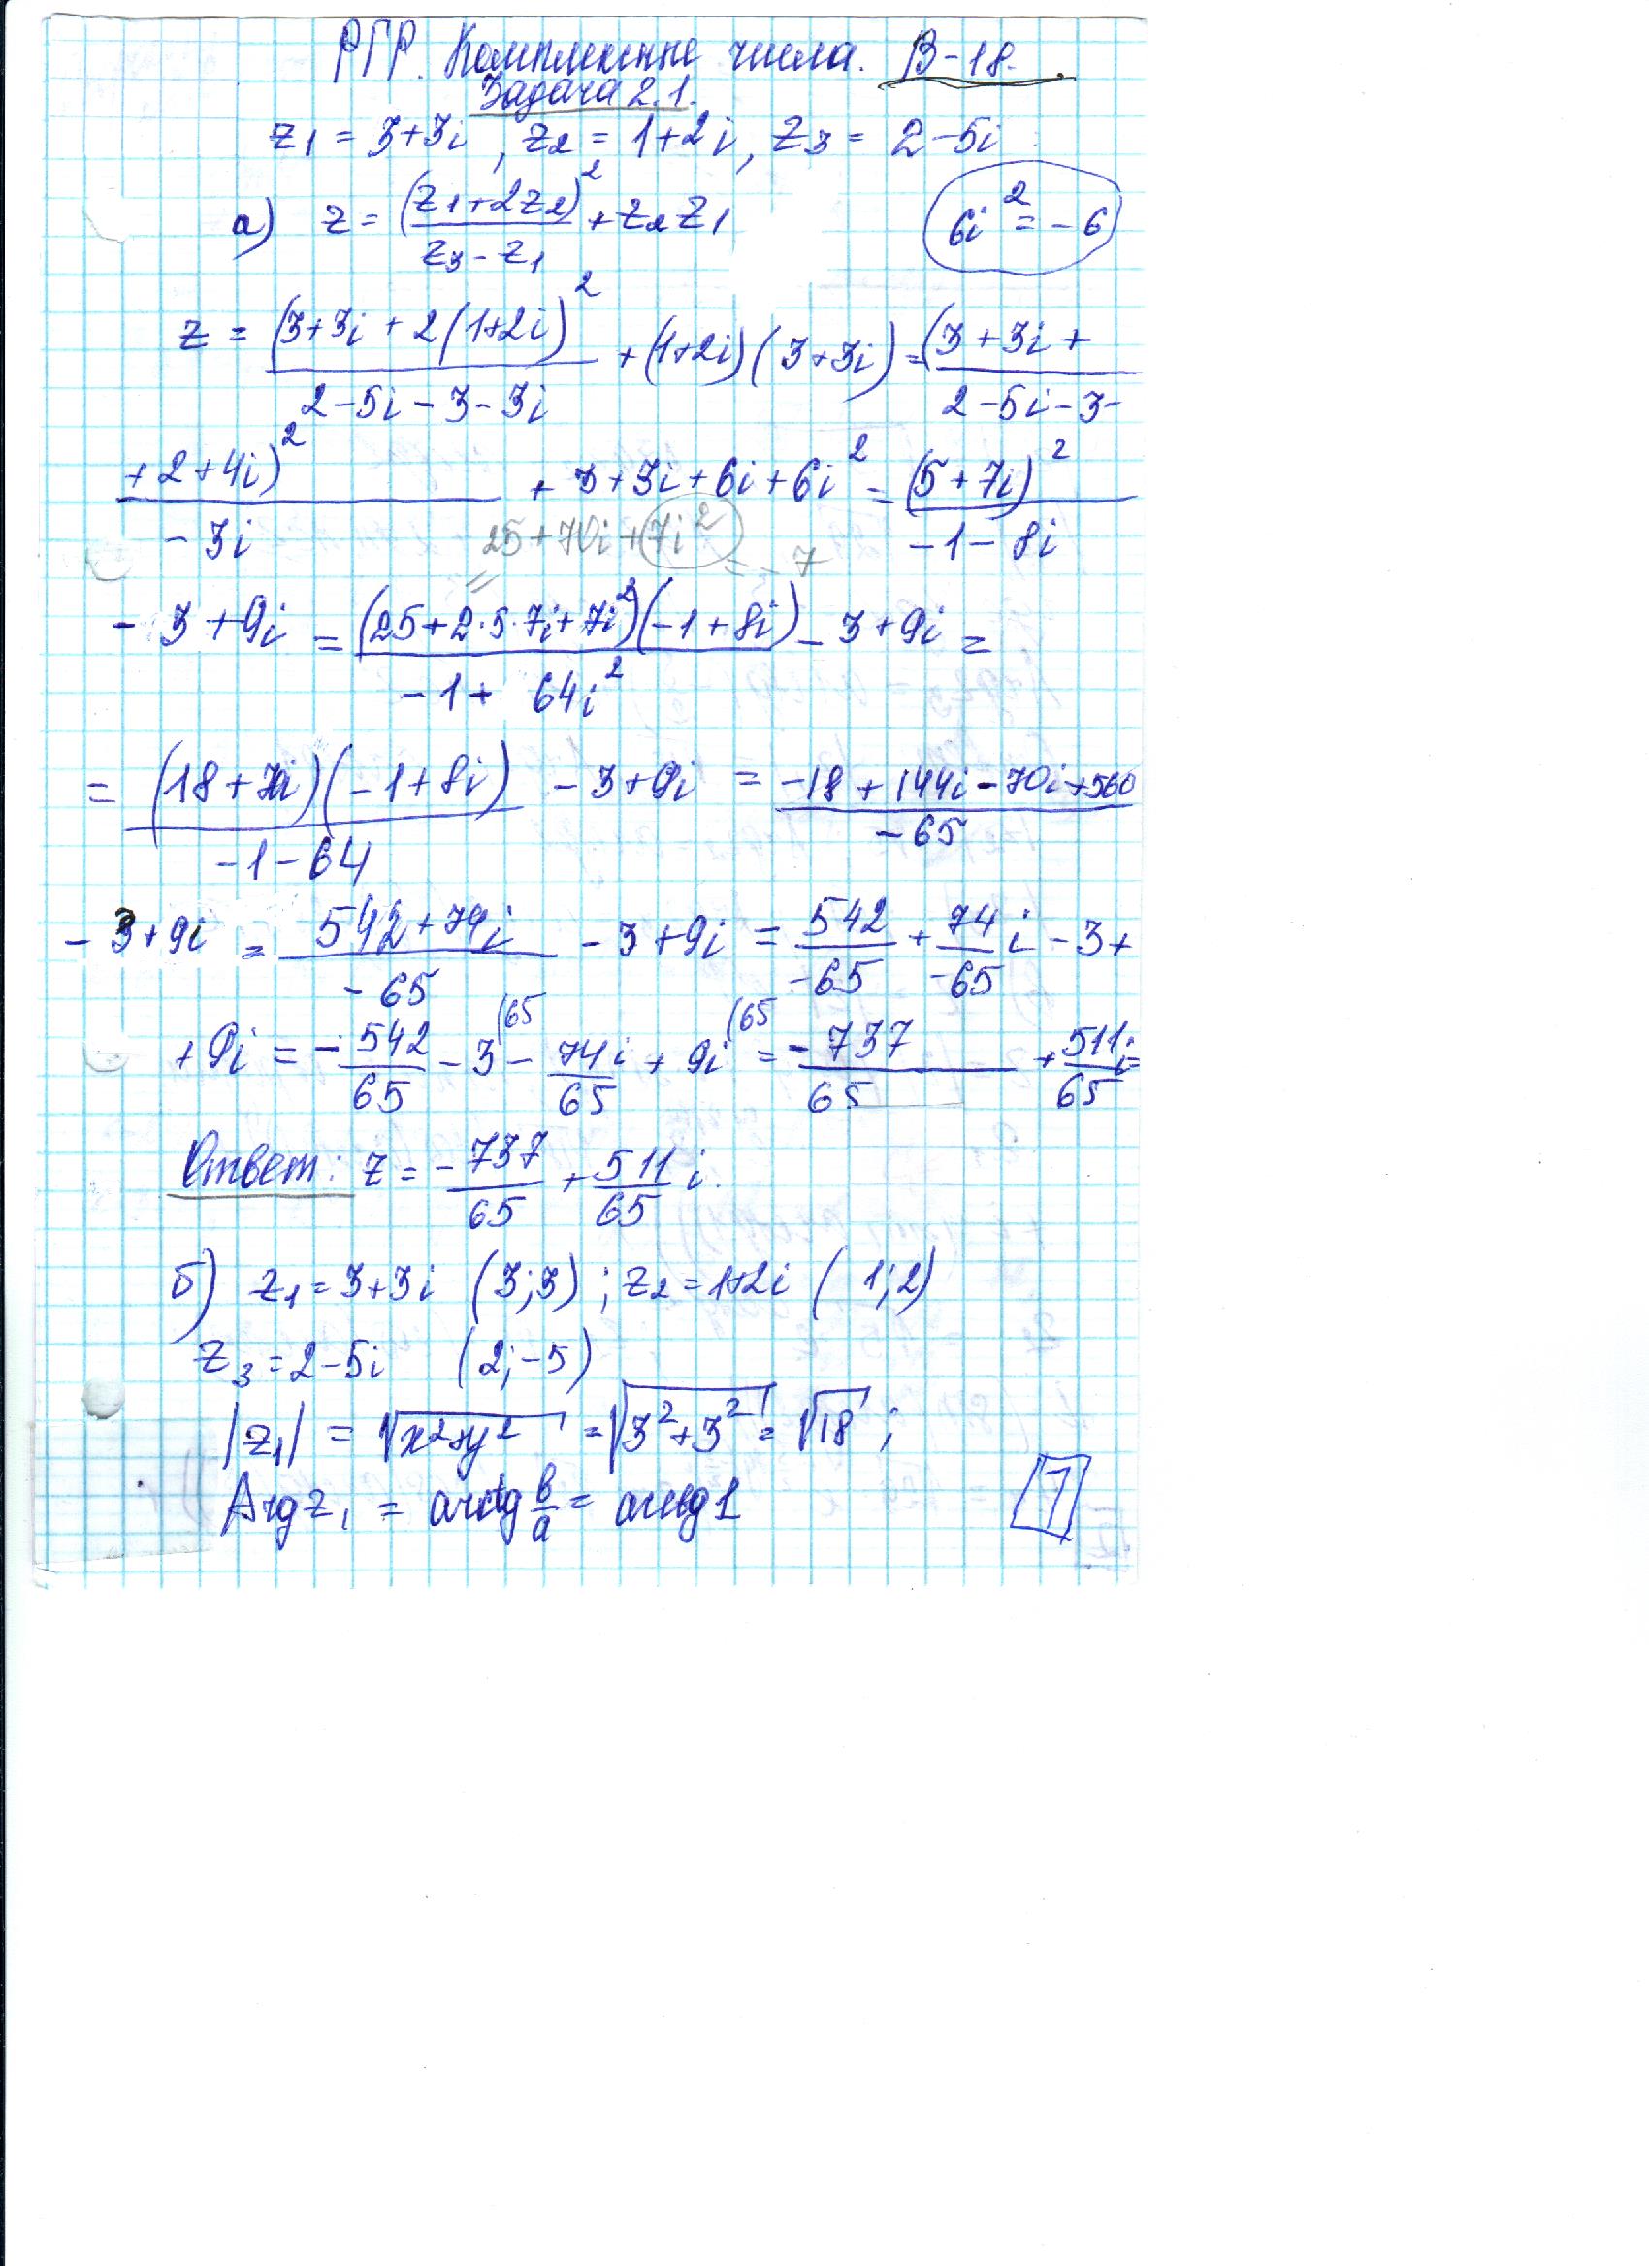 РГР. Комплексные числа. В-18.
Задача 2.1.
z1 = 3+3i , z2 = 1+2i, z3 = 2-5i
а) z = (z1+2z2)^2/(z3-z1) + z2 z1
6i^2 = -6
z = (3+3i+2(1+2i)^2/(2-5i-3-3i) + (1+2i)(3+3i) = (3+3i+/2-5i-3-
+2+4i)^2/-3i + 3+3i+6i+6i^2 = (5+7i)^2/(-1-8i)
25+70i+7i^2 = -7
- 3+9i = (25+2·5·7i+7i^2)(-1+8i)/(-1+ 64i^2) - 3+9i =
= (18+70i)(-1+8i)/(-1-64) - 3+9i = (-18+144i-70i+560)/-65
- 3+9i = (542+74i)/-65 - 3+9i = 542/-65 + 74/-65 i - 3+
+9i = - 542/65 - 3(65 - 74i/65 + 9i(65 = - 737/65 + 511i/65 =
Ответ: z = - 737/65 + 511/65 i.
б) z1 = 3+3i (3;3) ; z2 = 1+2i ( 1;2)
z3 = 2-5i (2;-5)
|z1| = √x^2+y^2 = √3^2+3^2 = √18 ;
Arg z1 = arctg в/а = arctg 1
1